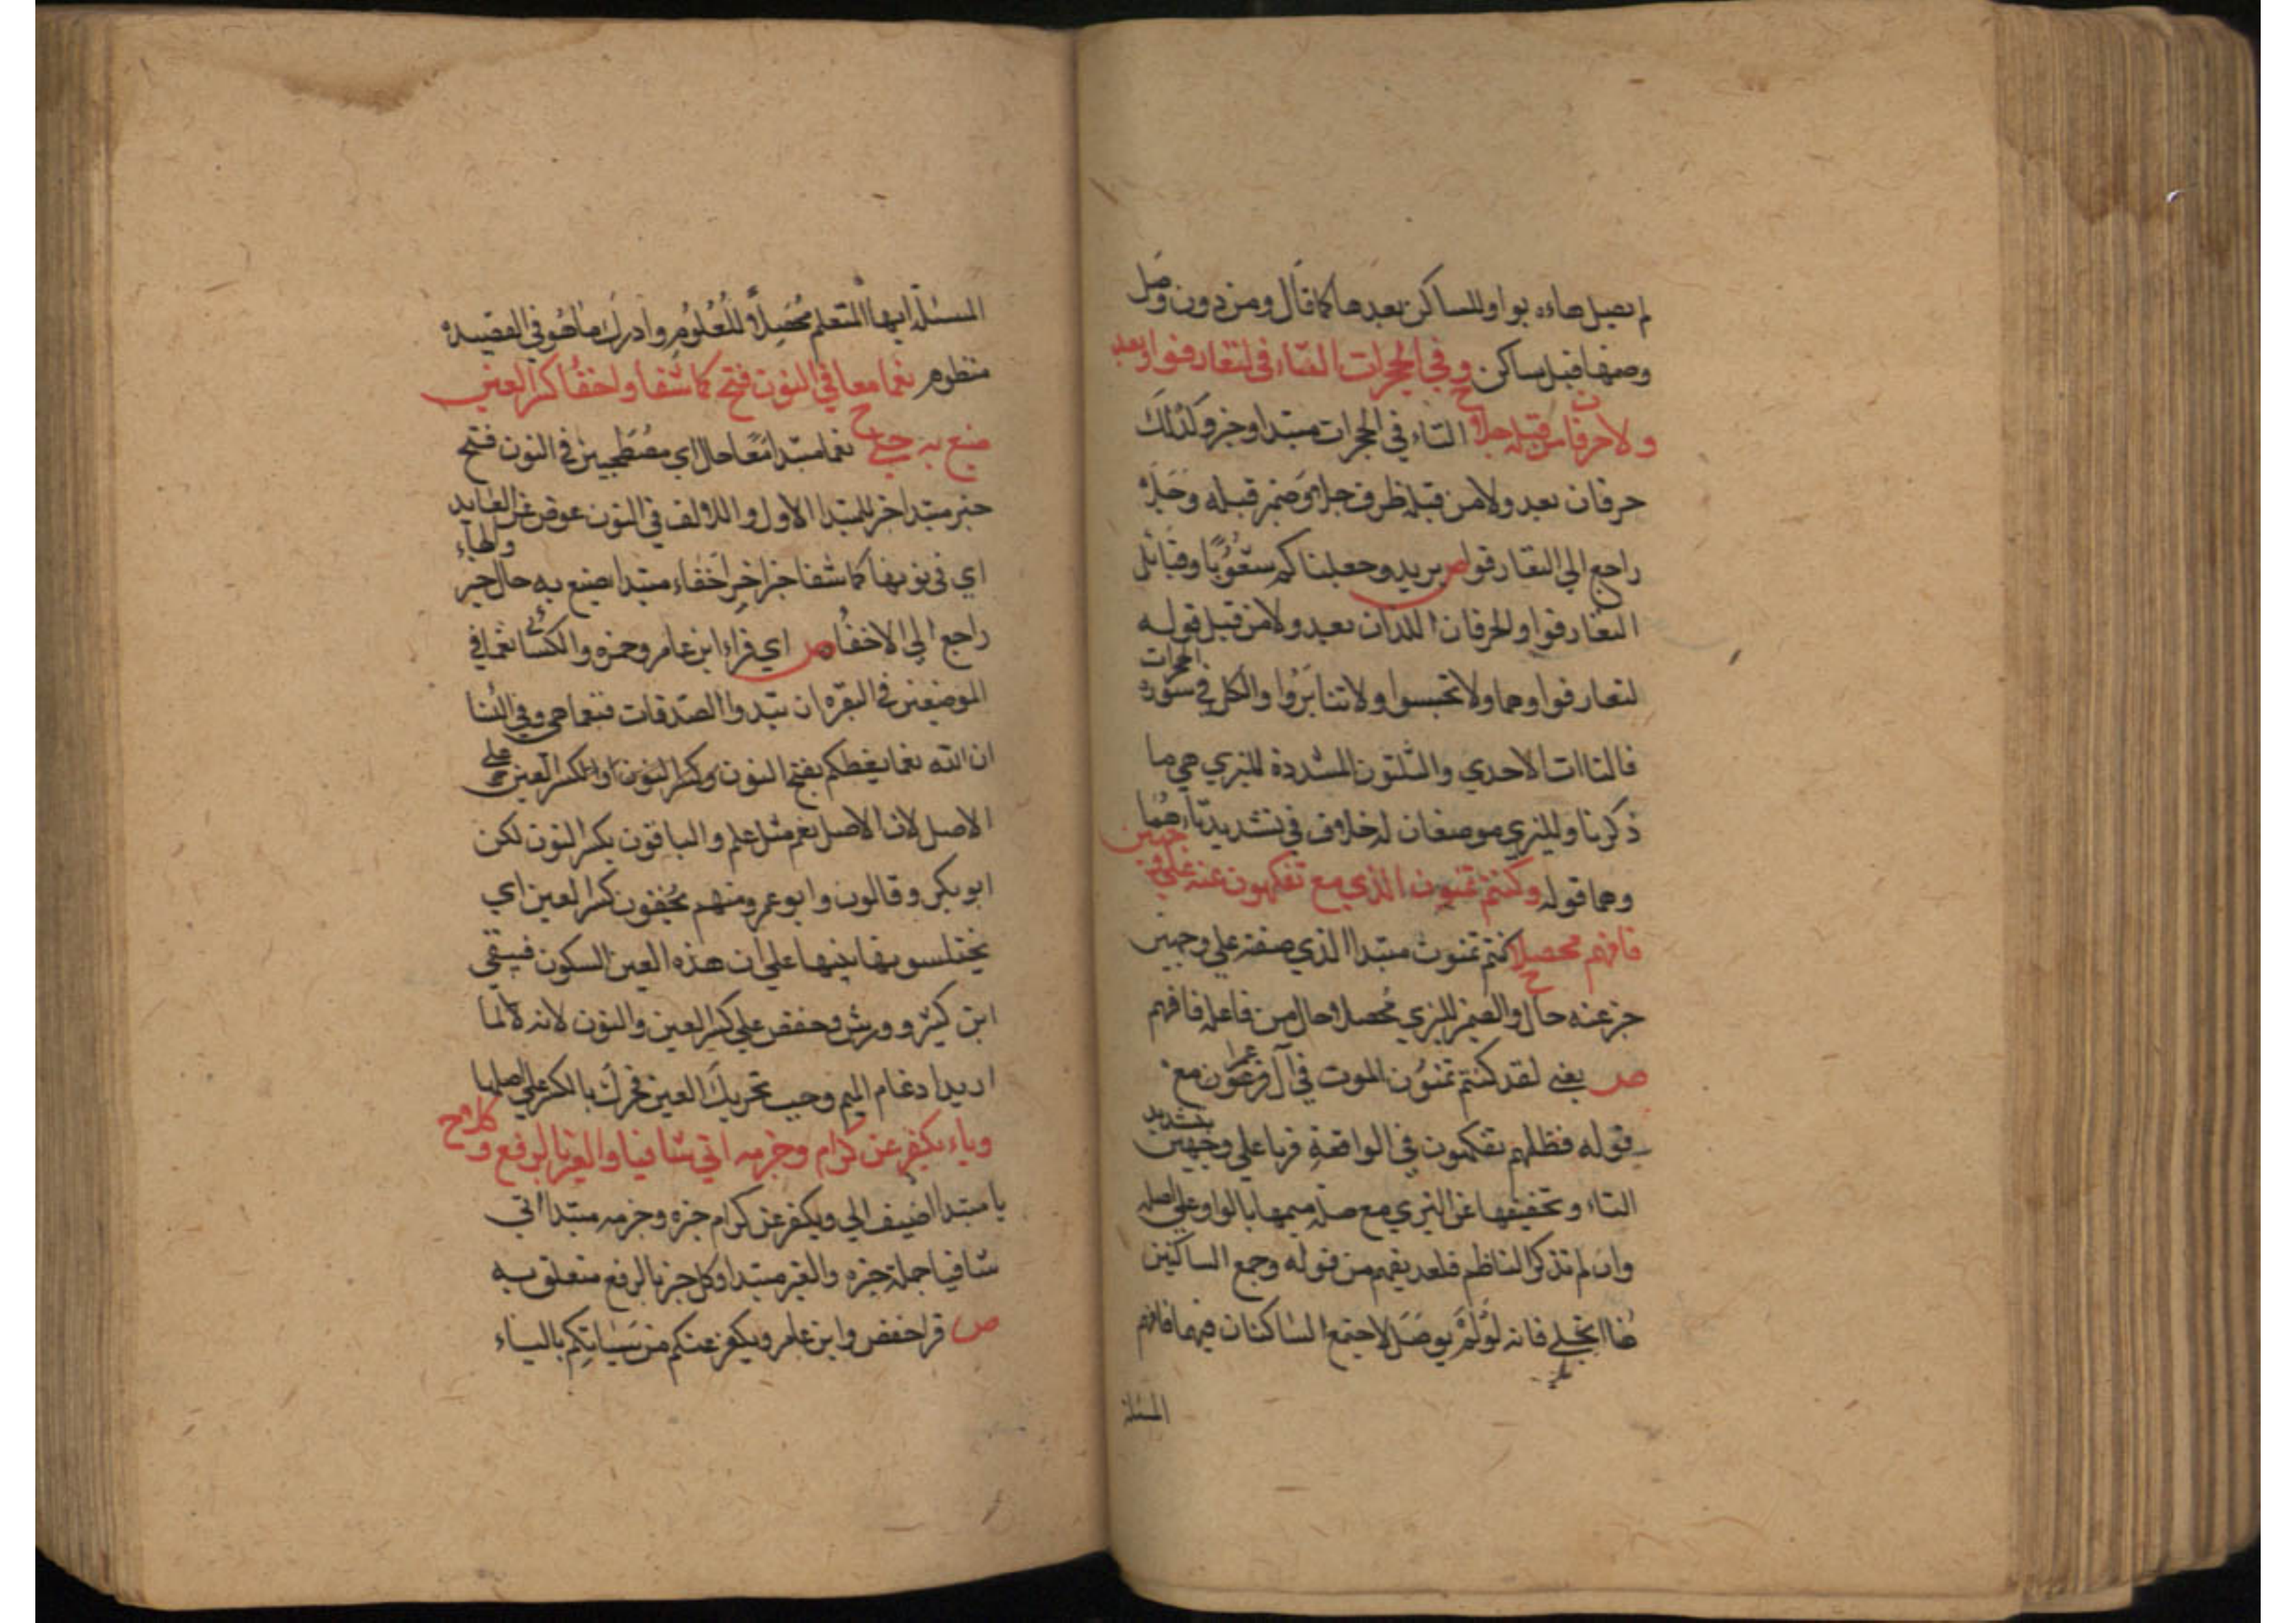 لم يصل هاءه بواو للساكن بعدها كما قال ومن دون وصل
وضمها قبل ساكن وفي الحجرات التاء في لتعارفوا وبعد
ولا حرفان من قبله جلا ح التاء في الحجرات مبتدا وخبر وكذلك
حرفان بعد ولا من قبله ظرف جلا وضمير قبله وجلا
راجع الى التعارفوا ص يريد وجعلناكم شعوبا وقبائل
التعارفوا والحرفان اللذان بعد ولا من قبل قوله
لتعارفوا وهما ولا تجسسوا ولا تنابزوا والكل في سورة الحجرات
فالتاات الاحدي والثلثون المشددة للبزي هي ما
ذكرنا وللبزي موضعان له خلاف في تشديد تاءهما
وهما قوله وكنتم تمنون الذي مع تفكهون عنه على وجهين
فافهم محصلا ح كنتم تمنون مبتدا الذي صفته علي وجهين
خبر عنه حال والضمير للبزي محصلا حال من فاعل فافهم
ص يعني لقد كنتم تمنون الموت في آل عمران مع
قوله فظلتم تفكهون في الواقعة قرءا علي وجهين بتشديد
التاء وتخفيفها عن البزي مع صلة ميمها بالواو علي اصله
وان لم تذكر الناظم فلعد يفهم من قوله وجمع الساكنين
هاا تجلي فانه لو لم يوصل لاجتمع الساكنان فيهما فافهم
المسئلة
المسئلة ايها المتعلم محصلا للعلوم وادرك ما هو في القصيدة
منظوم نعما معا في النون فتح كما شفا واخفا كسر العين
صيغ به حلي ح نعما مبتدا معا حال اي مصطحبين في النون فتح
خبر مبتدا خبر للمبتدا الاول والالف في النون عوض عن العايد والهاء
اي في نونها كما شفا خبر اخر اخفاء مبتدا صيغ به حال خبر
راجع الى الاخفا ص اي قراء ابن عامر وحمزه والكسائي نعما في
الموضعين في البقره ان تبدوا الصدقات فنعما هي وفي النسا
ان الله نعما يعظكم بفتح النون وكسر العين علي
الاصل لان الاصل نعم مثل علم والباقون بكسر النون لكن
ابو بكر وقالون وابو عمرو منهم يخفون كسر العين اي
يختلسونها تنبيها علي ان هذه العين السكون فيبقي
ابن كثير وورش وحفص علي كسر العين والنون لانه لما
اريد ادغام الميم وجب تحريك العين فحرك بالكسر علي اصلها
وياء يكفر عن كرام وجزمه اتي شافيا والغير بالرفع وكلا ح
يا مبتدا اضيف الي ويكفر عن كرام خبره وجزمه مبتدا اتي
شافيا جملة خبره والغير مبتدا وكل خبر بالرفع متعلق به
ص قرا حفص وابن عامر ويكفر عنكم من سيئاتكم بالياء